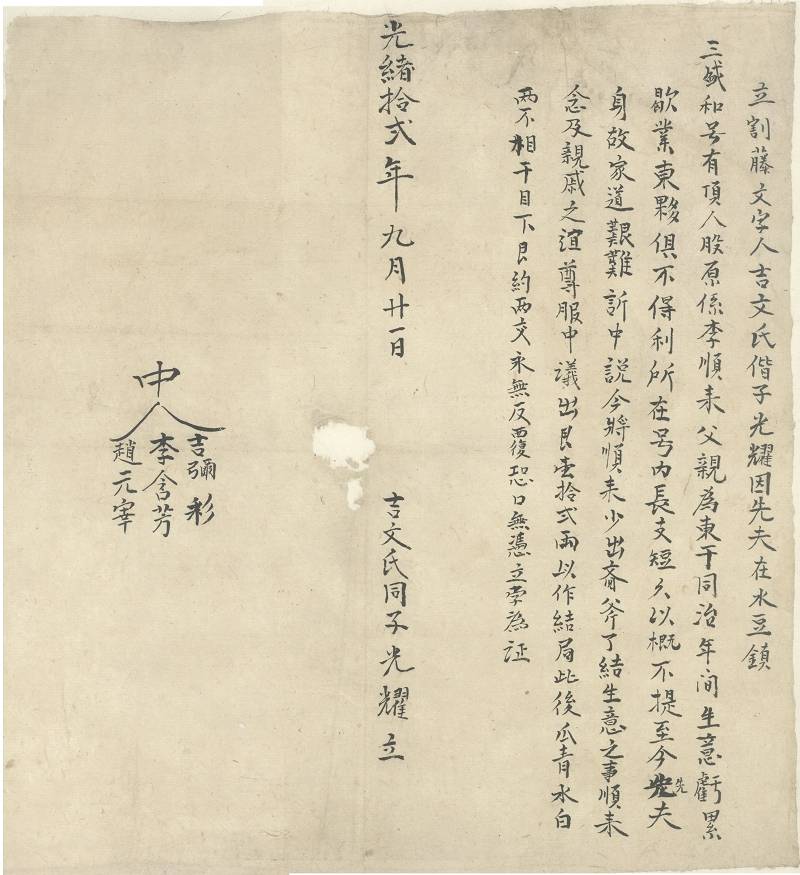 立割藤文字人吉文氏偕子光耀因先夫在水豆鎮
三盛和号有頂人股原係李順来父親為東于同治年间生意虧累
歇業東夥俱不得利所在号内長支短欠以概不提至今先夫
身故家道艱難訴中説今將順来少出斎斧了結生意之事順来
念及親戚之誼尊服中議出艮壹拾弍兩以作結局此後瓜青水白
两不相干目下艮約两交永無反覆恐口無憑立字為证
光緒拾弍年九月廿一日
吉文氏同子光耀立
中人
吉彌彩
李含芳
趙元宰